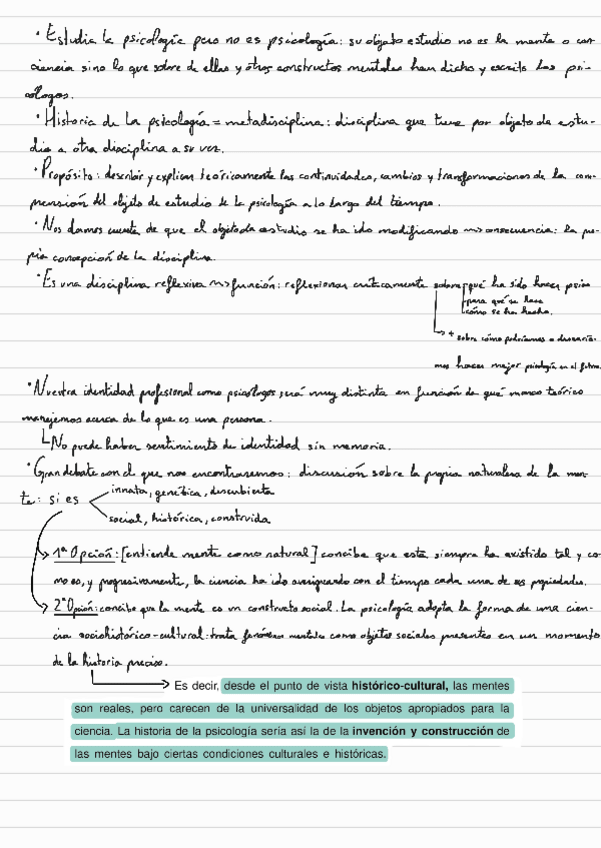 · Estudia la psicología pero no es psicología: su objeto estudio no es la mente o con-
ciencia sino lo que sobre de ellas y otros constructos mentales han dicho y escrito los psi-
cólogos.
· Historia de la psicología = metadisciplina: disciplina que tiene por objeto de estu-
dio a otra disciplina a su vez.
· Propósito: describir y explicar teóricamente las continuidades, cambios y transformaciones de la com-
prensión del objeto de estudio de la psicología a lo largo del tiempo.
· Nos damos cuenta de que el objeto de estudio se ha ido modificando ⇝ consecuencia: la pro-
pia concepción de la disciplina.
· Es una disciplina reflexiva ⇝ función: reflexionar críticamente sobre qué ha sido hacer psico
para qué se hace
cómo se ha hecho.
→ + sobre cómo podríamos o deberría-
mos hacer mejor psicología en el futuro.
· Nuestra identidad profesional como psicólogos será muy distinta en función de qué marco teórico
manejemos acerca de lo que es una persona.
No puede haber sentimiento de identidad sin memoria.
· Gran debate con el que nos encontraremos: discusión sobre la propia naturaleza de la men-
te: si es
innata, genética, descubierta
social, histórica, construida
→ 1ª Opción: [entiende mente como natural] concibe que esta siempre ha existido tal y co-
mo es, y progresivamente, la ciencia ha ido averiguando con el tiempo cada una de sus propiedades.
→ 2ª Opción: concibe que la mente es un constructo social. La psicología adopta la forma de una cien-
cia sociohistórico-cultural: trata fenómenos mentales como objetos sociales presentes en un momento
de la historia preciso.
→ Es decir, desde el punto de vista histórico-cultural, las mentes
son reales, pero carecen de la universalidad de los objetos apropiados para la
ciencia. La historia de la psicología sería así la de la invención y construcción de
las mentes bajo ciertas condiciones culturales e históricas.